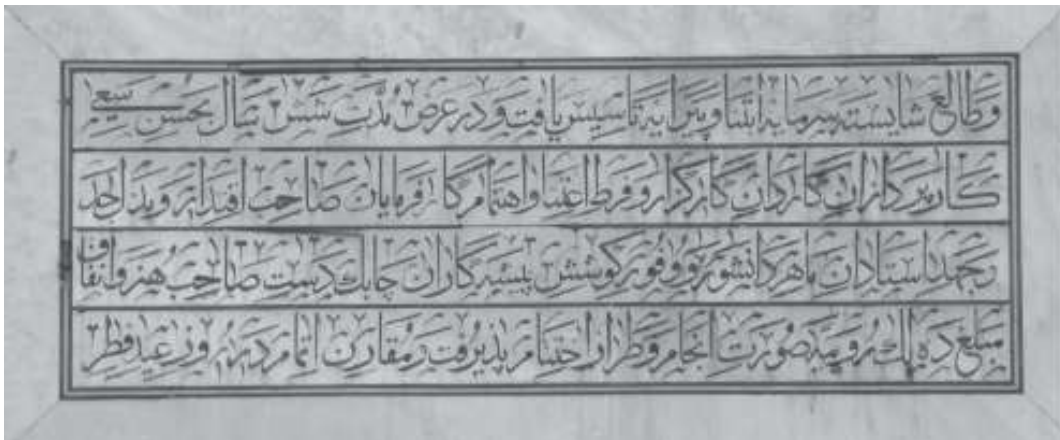 و طالع شایسته سرمایه ابتنا و پیرایه تاسیس یافته و در عرض مدت شش سال بحسن سعی
کارپردازان کاردان کارگزار و فرط اعتنا و اهتمام کارفرمایان صاحب اقتدار و بذل جد
و جهد استادان ماهر دانشور و وفور کوشش پیشه کاران چابک دست صاحب هنر و انفاق
مبلغ ده لک روپیه صورت انجام و طراز اختتام پذیرفت و مقارن اتمام در روز عید فطر